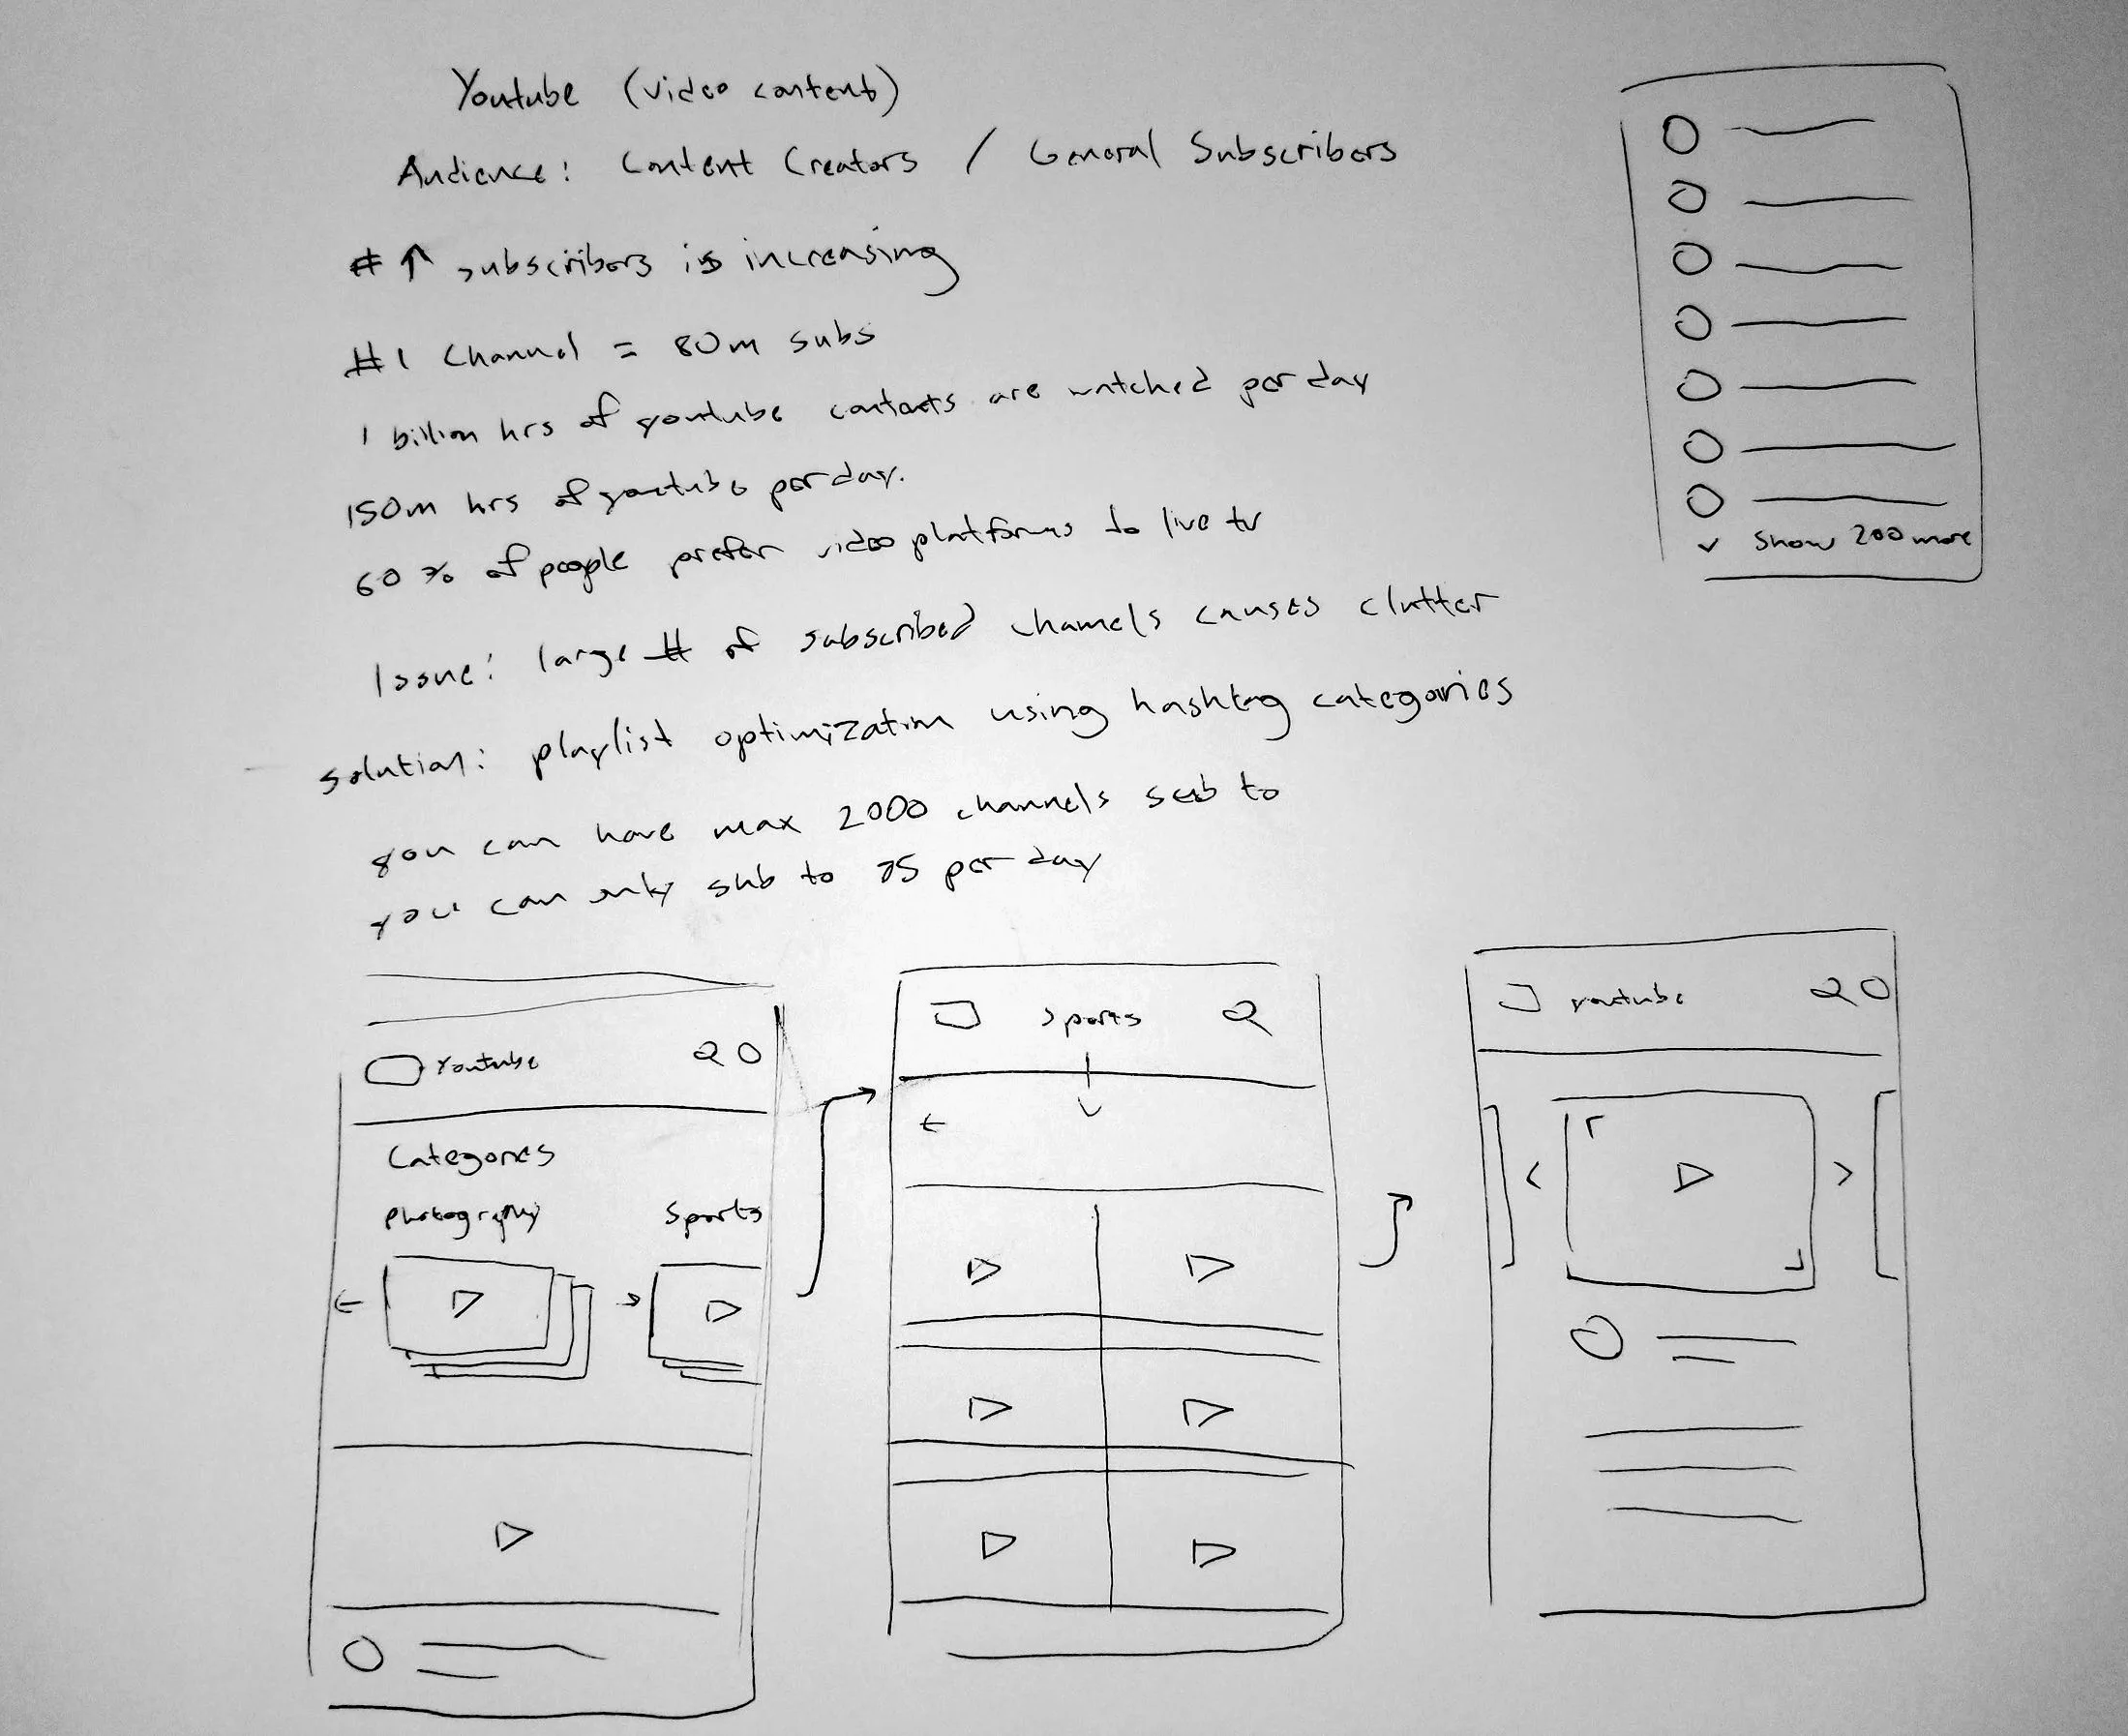 Youtube (video content)
Audience: Content Creators / General Subscribers
# ↑ subscribers is increasing
#1 Channel = 80m subs
1 billion hrs of youtube contents are watched per day
150m hrs of youtube per day.
60% of people prefer video platforms to live tv
Issue: large # of subscribed channels causes clutter
solution: playlist optimization using hashtag categories
you can have max 2000 channels sub to
you can only sub to 75 per day
Show 200 more
Youtube
Categories
photography Sports
Sports
youtube